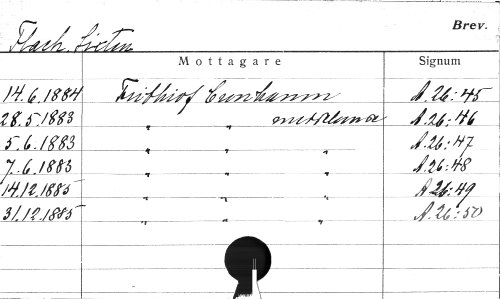 Brev.
Flach, Sixten
Mottagare Signum
14.6.1884 Frithiof Cronhamm A.26:45
28.5.1883 " " A.26:46
5.6.1883 " " " A.26:47
7.6.1883 " " " A.26:48
14.12.1885 " " " A.26:49
31.12.1885 " " " A.26:50